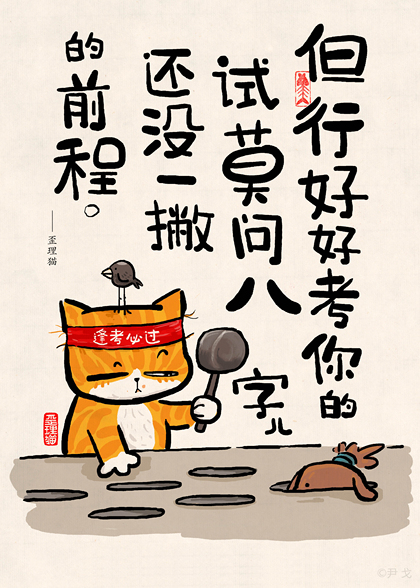 但行好好考你的
试莫问八字儿
还没一撇
的前程。
——歪理猫
逢考必过
歪理猫
©尹戈